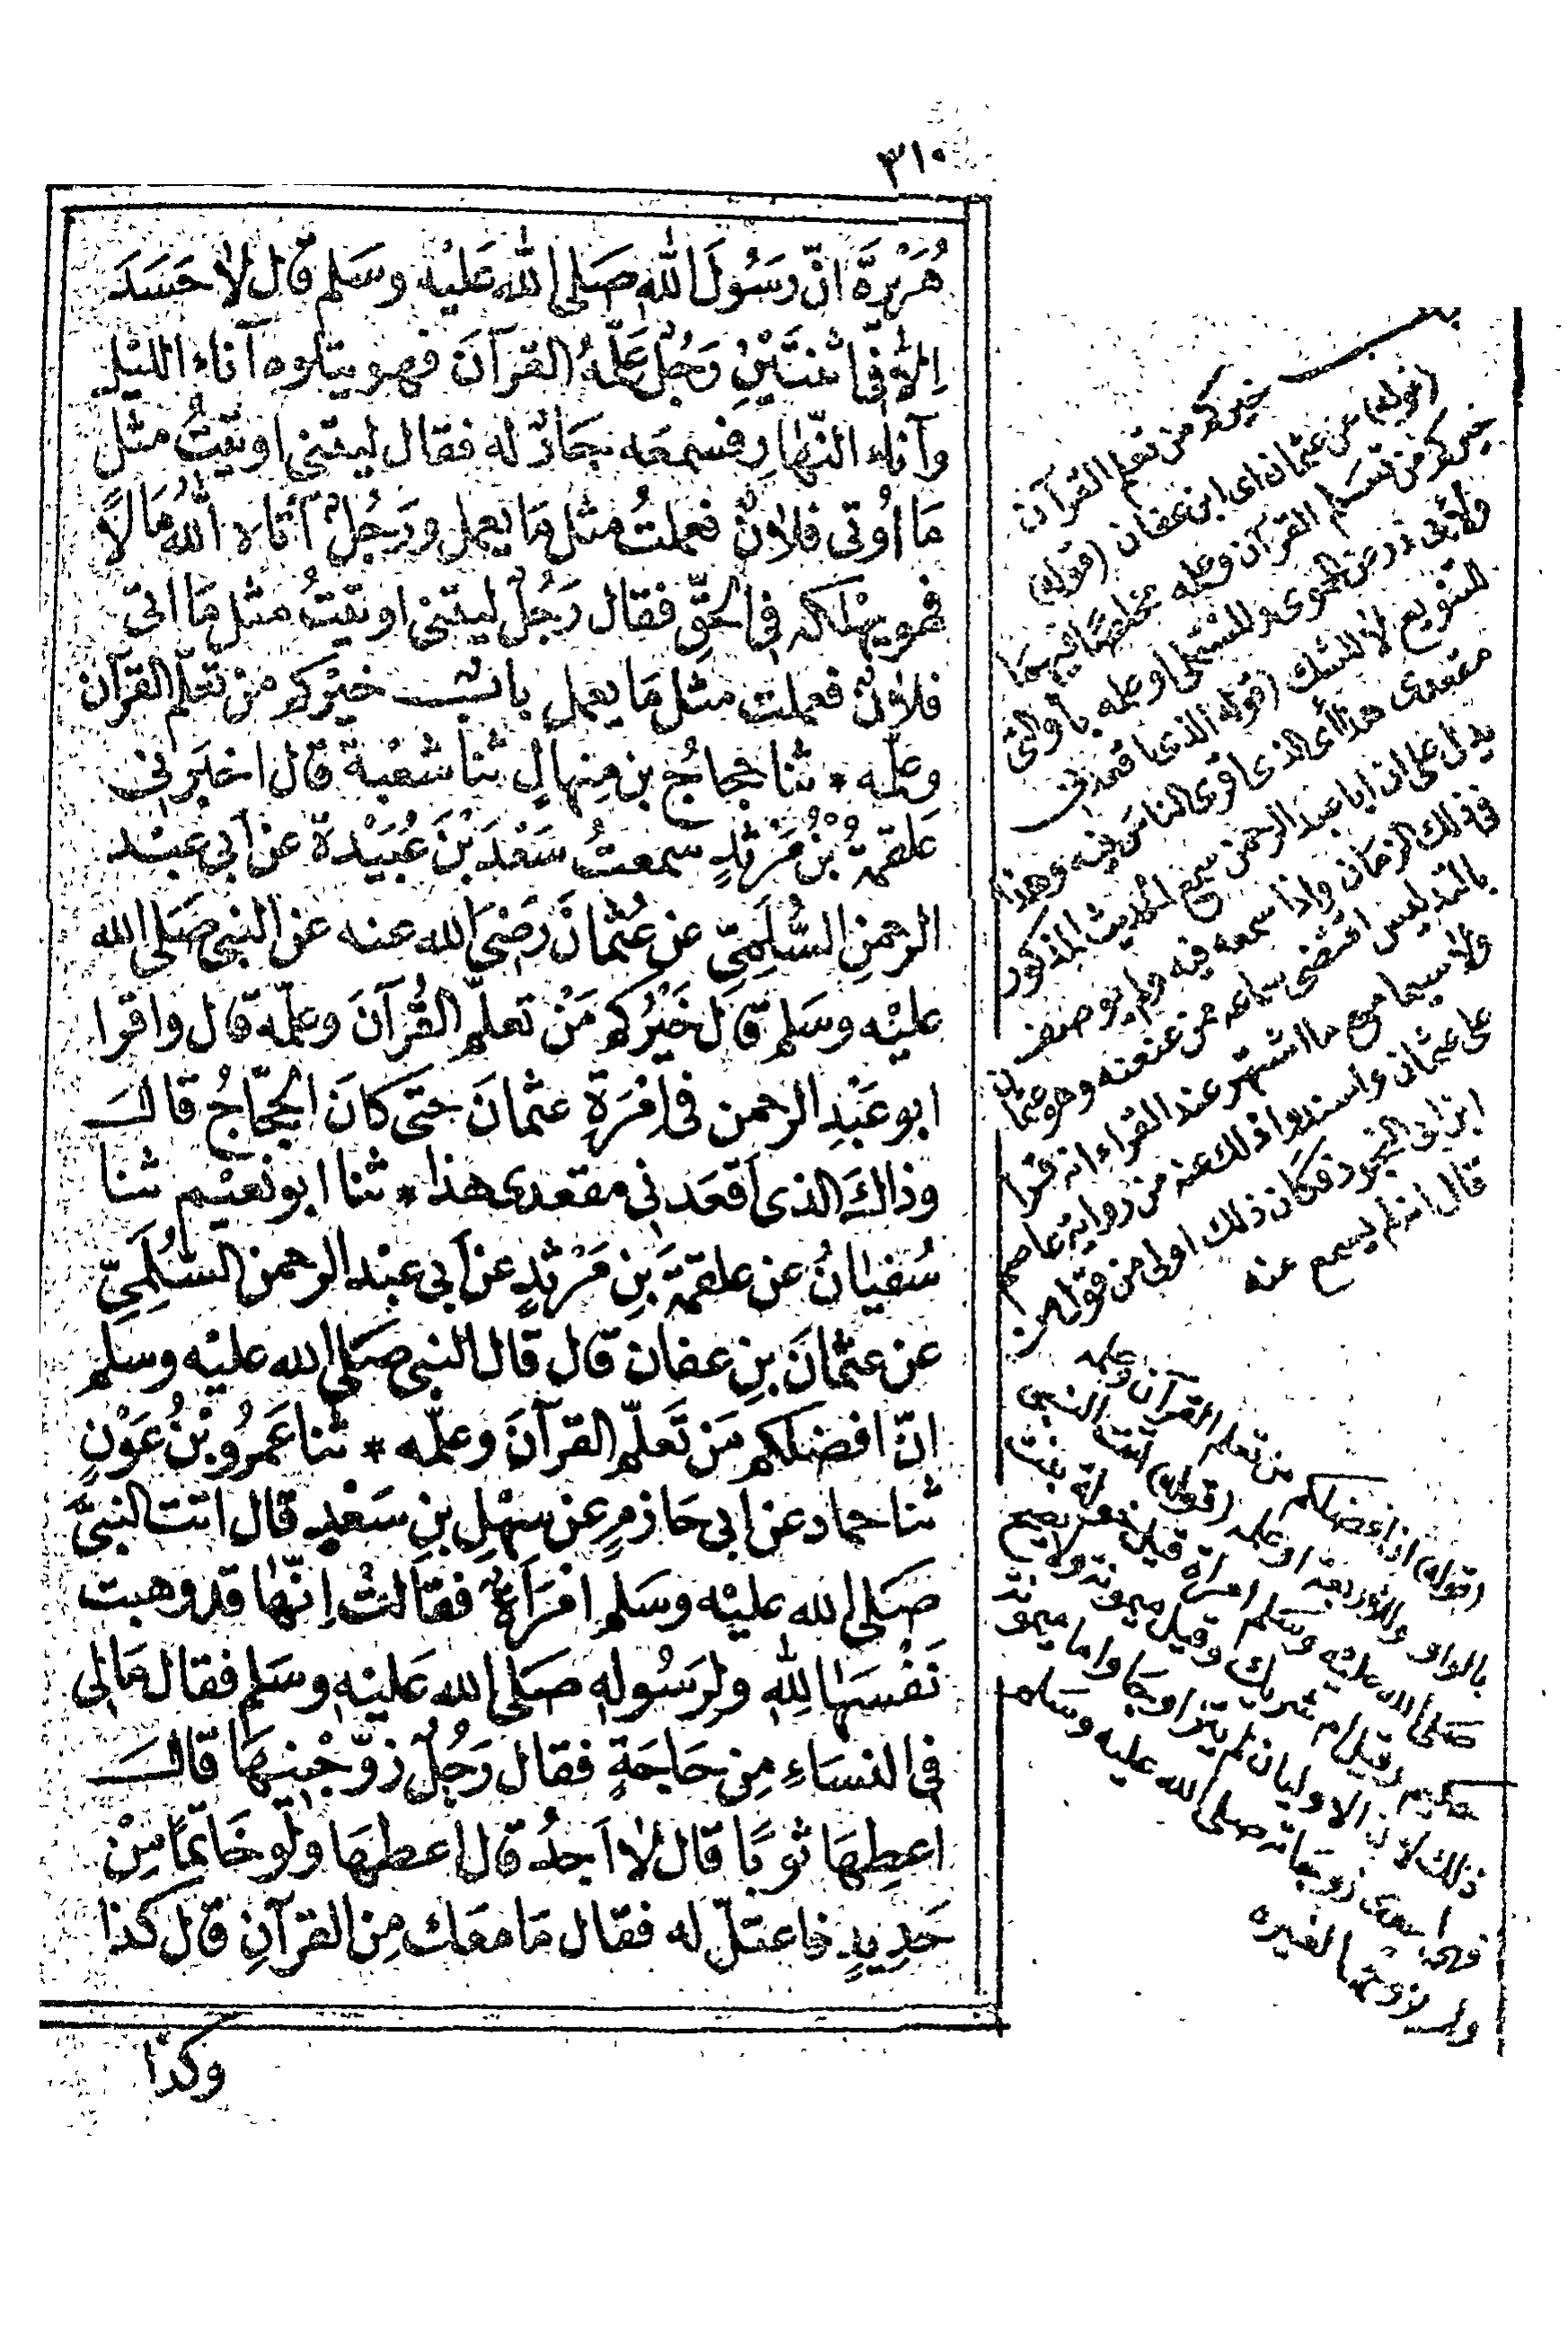 ٣١٠
هُرَيْرَةَ انّ رَسُولَ اللهِ صَلى اللهُ عَليْه وسَلم قال لا حَسَدَ
اِلّا فى اثنتَيْنِ رَجُلٌ عَلّمَهُ القرآنَ فهو يتلوه آناء الليْلِ
وآناء النّهارِ فسمعَه جَارٌ له فقال ليتنى اوتيتُ مثل
مَا اُوتى فلانٌ فعملتُ مثل مَا يعمل ورَجُلٌ آتاه اللهُ مَالًا
فهو يهْلكه فى الحَقِّ فقال رَجُلٌ ليتنى اوتيتُ مثل مَا اتى
فلانٌ فعملت مثل مَا يعمل باب خيْركم من تعلّم القرآن
وعلّمه * ثنا حجاجُ بن مِنهالٍ ثنا شعْبة قال اخبَرنى
عَلقمةُ بْنُ مَرْثدٍ سمعتُ سَعْدَ بْنَ عُبَيْدة عن ابى عبْد
الرحمنِ السُّلَمِىّ عن عُثمانَ رَضىَ الله عنه عن النبى صَلى الله
عليْه وسَلم قال خَيْرُكم مَنْ تعلّم القُرآنَ وعلّمه قال واقرا
ابو عَبْدِ الرحمن فى اِمْرَةِ عثمانَ حتى كانَ الحجّاجُ قال
وذاكَ الذى اَقعَدنى مقعدى هذا * ثنا ابو نعيْم ثنا
سُفيانُ عن علقمةَ بنِ مَرْثدٍ عن اَبى عبْد الرحمن السُّلَمِىّ
عن عثمانَ بنِ عفان قال قال النبى صَلى الله عليْه وسلم
انّ افضلكم مَن تَعلّم القرآنَ وعلّمه * ثنا عَمرُو بْنُ عَوْنٍ
ثنا حماد عن ابى حَازمٍ عن سهْلِ بنِ سَعْدٍ قال اتت النبىَّ
صَلى الله عليْه وسَلم امْرَأةٌ فقالتْ اِنّها قد وهبت
نَفْسَها للّهِ ولِرَسُولهِ صَلى الله عَليْه وسَلم فقال مَا لى
فى النسَاءِ مِن حَاجَةٍ فقال رَجُلٌ زوّجْنِيهَا قال
اعطِهَا ثوبًا قال لا اَجدُ قال اعطهَا ولَو خَاتمًا مِنْ
حَدِيدٍ فاعتلّ له فقال مَا مَعَك مِن القرآنِ قال كذا
وكذا
خيركم من تعلم القرآن
(قوله) عن عثمان اى ابن عفان (قوله)
خيركم من تعلم القرآن وعلمه مخلصًا فيهما
ولابى ذر عن الحموى والمستملى او علمه باو التى
للتنويع لا للشك (قوله) الذى اقعدنى
مقعدى هذا أى الذى اقرى الناس فيه وهذا
يدل على ان ابا عبد الرحمن سمع الحديث المذكور
فى ذلك الزمان واذا سمعه فيه ولم يوصف
بالتدليس اقتضى سماعه ممن عنعنه وهو عثمان
ولا سيما مع ما اشتهر عند القراء انه قرا
على عثمان واسندوا ذلك عنه من رواية عاصم
ابن ابى النجود فكان ذلك اولى من قول من
قال انه لم يسمع عنه
(قوله) ان افضلكم من تعلم القرآن وعلمه
بالواو وللاربعة او علمه (قوله) اتت النبى
صلى الله عليه وسلم امراة قيل خولة بنت
حكيم وقيل ام شريك وقيل ميمونة ولا يصح
ذلك لان الاوليان لم يتزاوجا واما ميمونة
فهى احدى زوجاته صلى الله عليه وسلم
ولم يزوجها لغيره